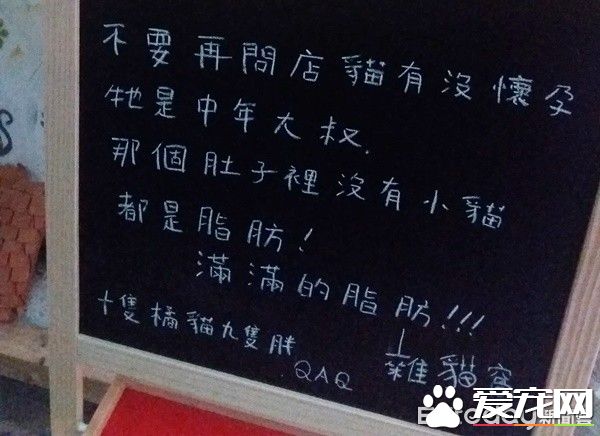 不要再問店貓有沒懷孕
牠是中年大叔.
那個肚子裡沒有小貓
都是脂肪!
滿滿的脂肪!!!
十隻橘貓九隻胖
QAQ
貓窩
爱宠网
新聞雲